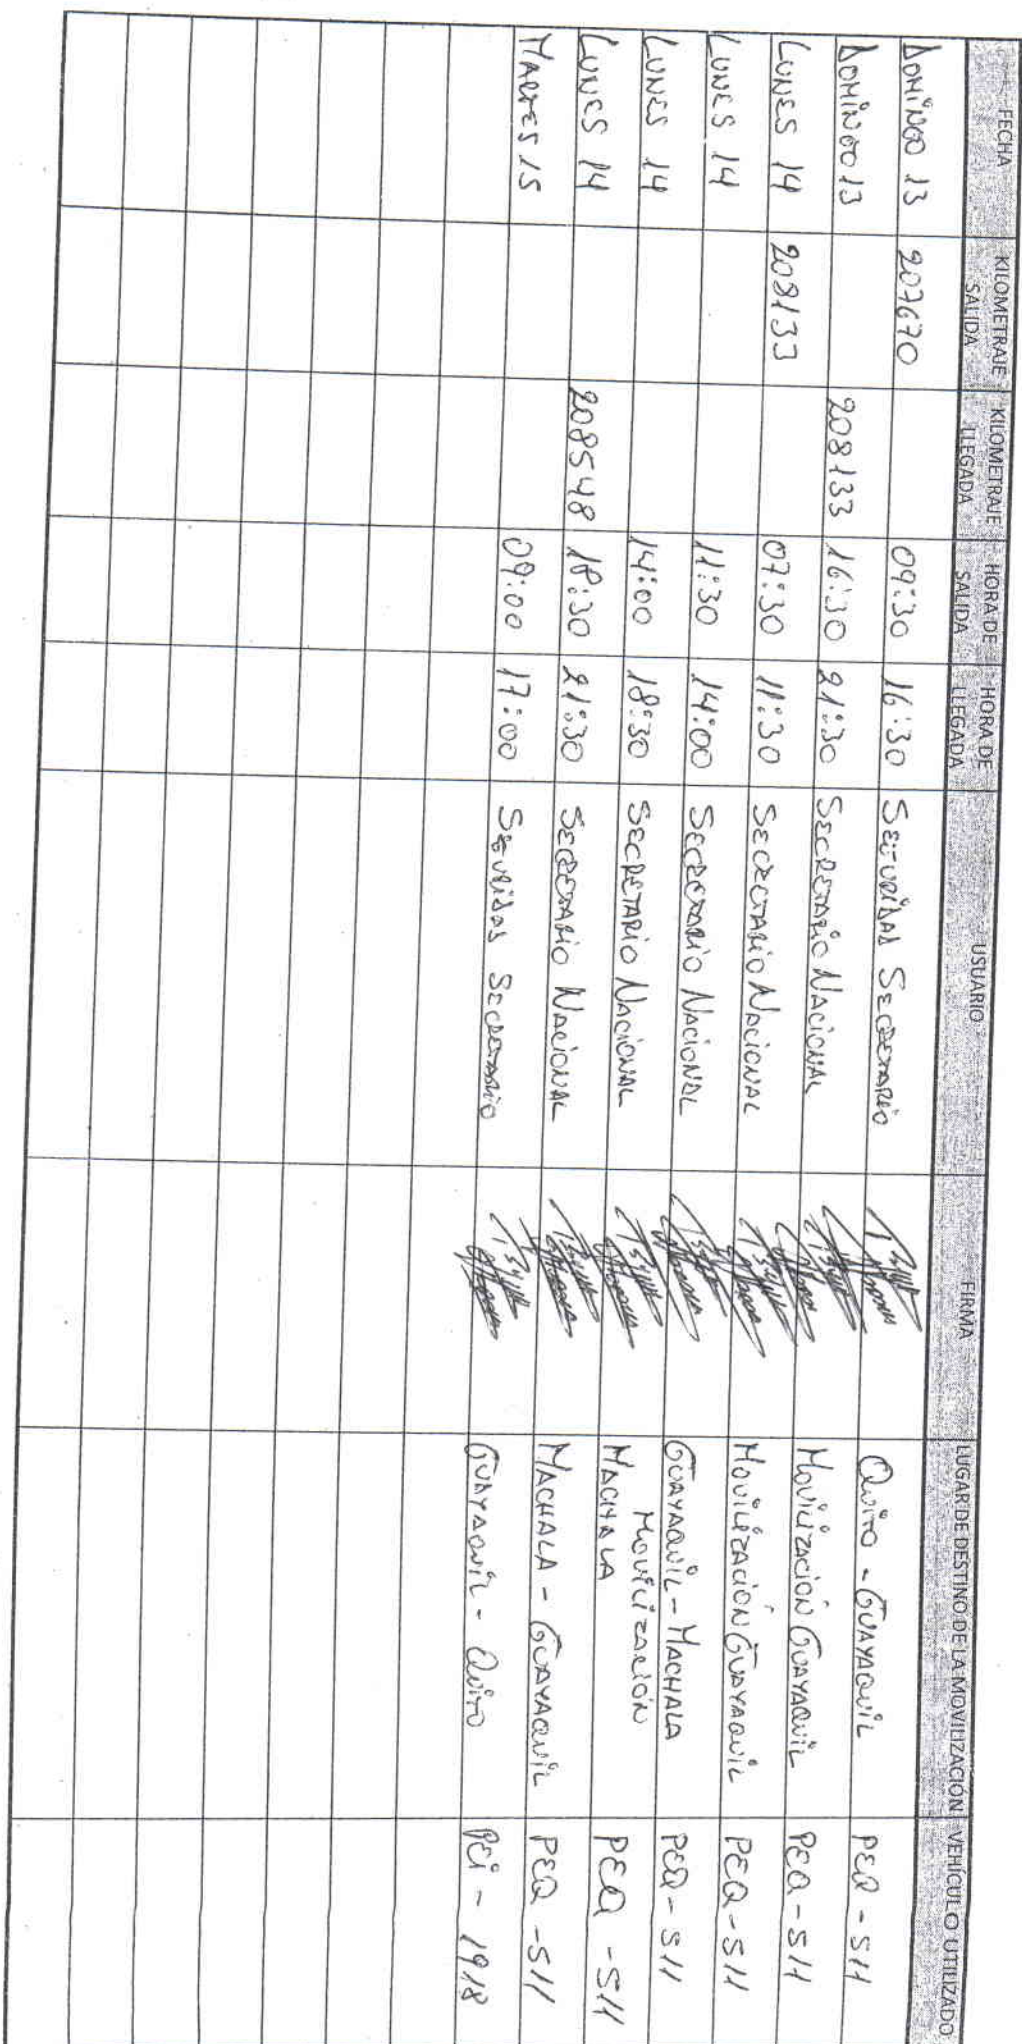 FECHA KILOMETRAJE SALIDA KILOMETRAJE LLEGADA HORA DE SALIDA HORA DE LLEGADA USUARIO FIRMA LUGAR DE DESTINO DE LA MOVILIZACIÓN VEHÍCULO UTILIZADO
DOMINGO 13 207670 09:30 16:30 SEGURIDAD SECRETARIO QUITO - GUAYAQUIL PEQ - 511
DOMINGO 13 208133 16:30 21:30 SECRETARIO NACIONAL MOVILIZACIÓN GUAYAQUIL PEQ - 511
LUNES 14 208133 07:30 11:30 SECRETARIO NACIONAL MOVILIZACIÓN GUAYAQUIL PEQ - 511
LUNES 14 11:30 14:00 SECRETARIO NACIONAL GUAYAQUIL - MACHALA PEQ - 511
LUNES 14 14:00 18:30 SECRETARIO NACIONAL MOVILIZACIÓN MACHALA PEQ - 511
LUNES 14 208548 18:30 21:30 SECRETARIO NACIONAL MACHALA - GUAYAQUIL PEQ - 511
MARTES 15 09:00 17:00 SEGURIDAD SECRETARIO GUAYAQUIL - QUITO PEI - 1918